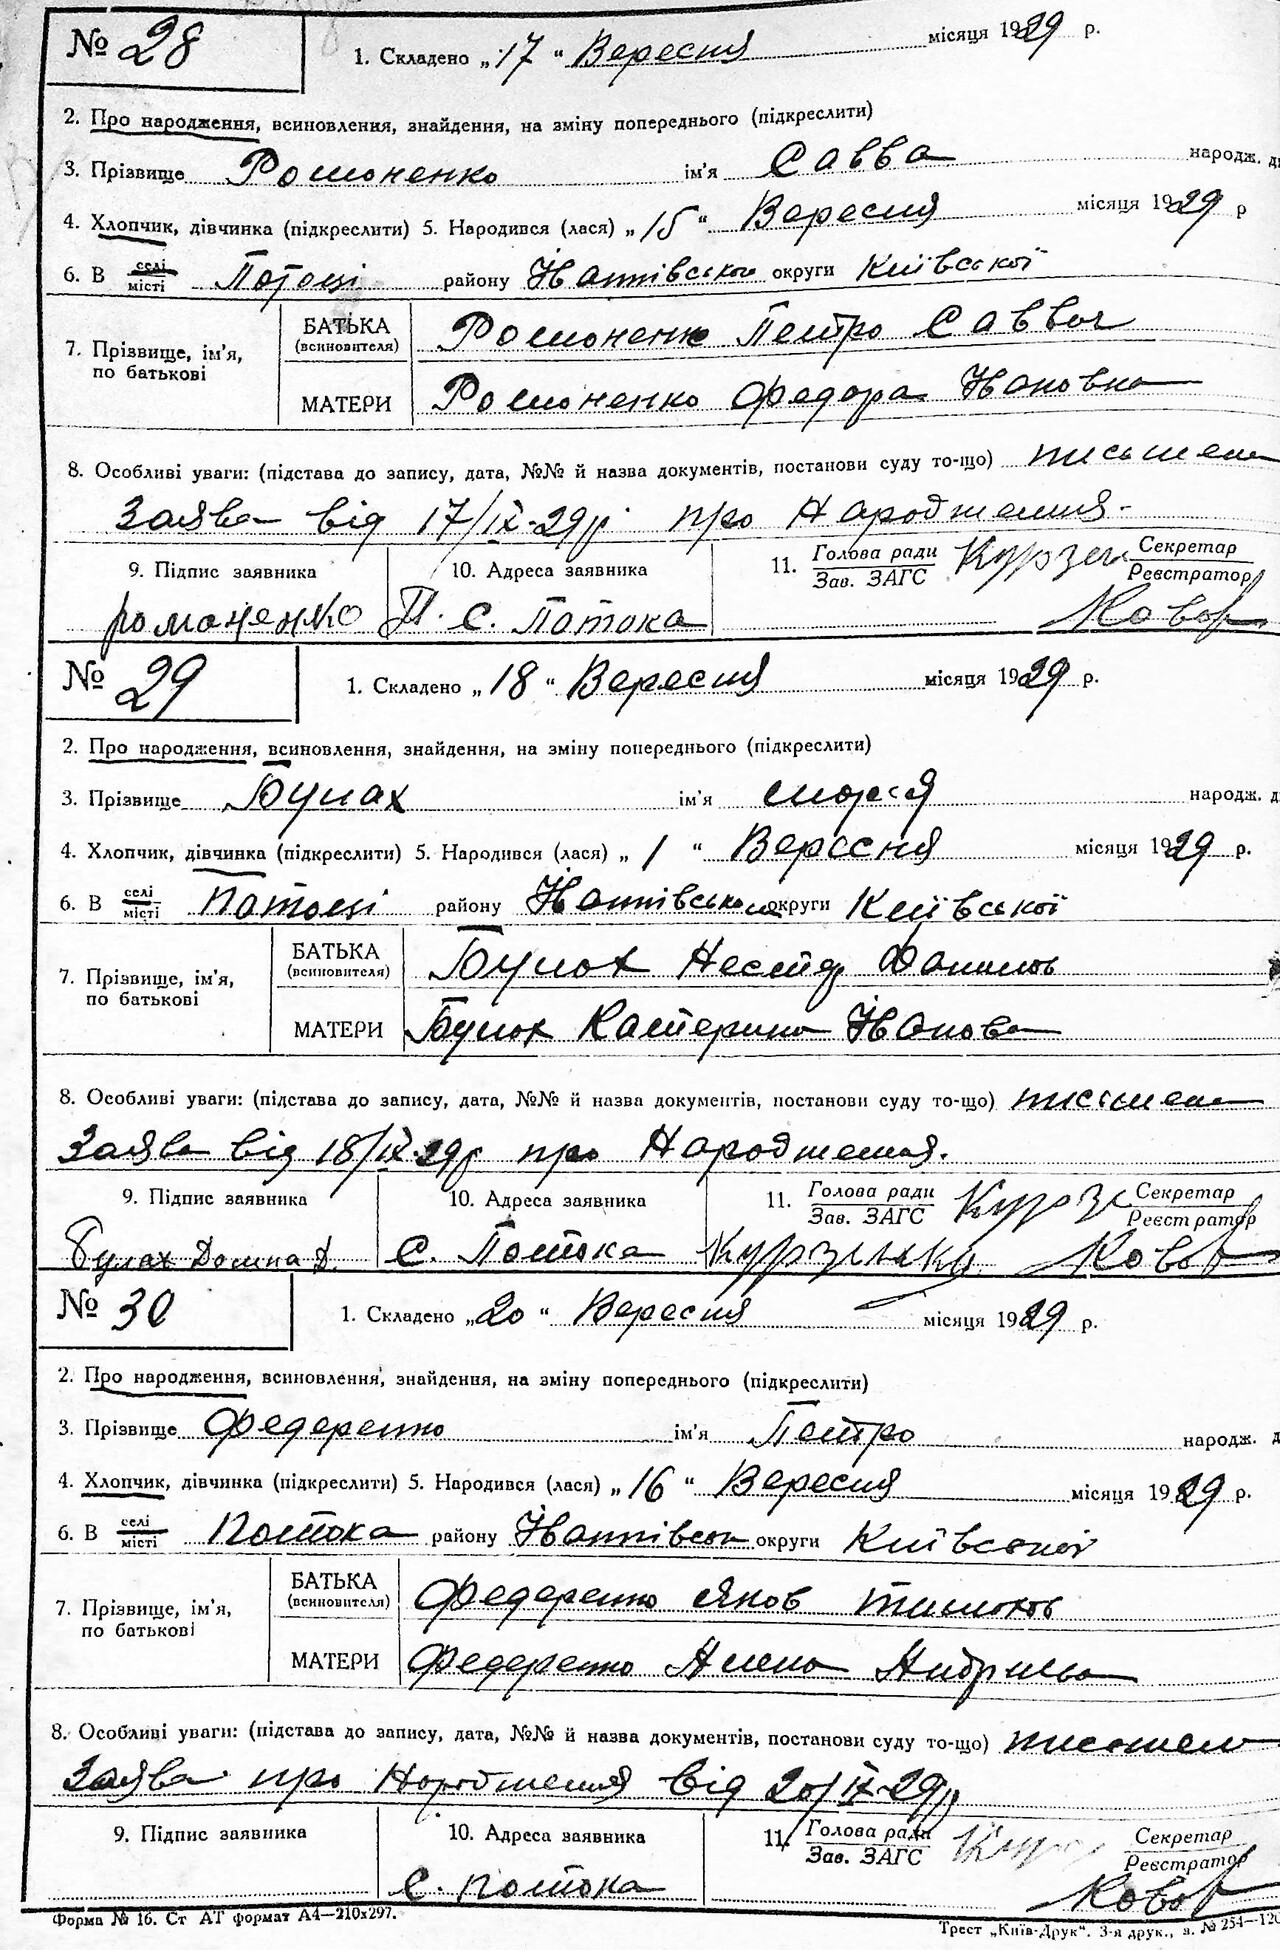 № 28
1. Складено „17“ Вересня місяця 1929 р.
2. Про народження, всиновлення, знайдення, на зміну попереднього (підкреслити)
3. Прізвище Романенко ім'я Савва народж. д
4. Хлопчик, дівчинка (підкреслити) 5. Народився (лася) „15“ Вересня місяця 1929 р
6. В селі Потоці району округи Київської
місті
7. Прізвище, ім'я, по батькові
БАТЬКА (всиновителя) Романенко Петро Саввич
МАТЕРИ Романенко Федора Івановна
8. Особливі уваги: (підстава до запису, дата, №№ й назва документів, постанови суду то-що) письмена
Заява від 17/IX-29р про Народження.
9. Підпис заявника 10. Адреса заявника 11. Голова ради Секретар
Зав. ЗАГС Реєстратор
романенко П. С. Потока
№ 29
1. Складено „18“ Вересня місяця 1929 р.
2. Про народження, всиновлення, знайдення, на зміну попереднього (підкреслити)
3. Прізвище Булах ім'я народж. д
4. Хлопчик, дівчинка (підкреслити) 5. Народився (лася) „1“ Вересня місяця 1929 р.
6. В селі Потоці району округи Київської
місті
7. Прізвище, ім'я, по батькові
БАТЬКА (всиновителя) Булах Нестор Данилов
МАТЕРИ Булах Катерина Іванова
8. Особливі уваги: (підстава до запису, дата, №№ й назва документів, постанови суду то-що) письмена
Заява від 18/IX-29р про Народження.
9. Підпис заявника 10. Адреса заявника 11. Голова ради Секретар
Зав. ЗАГС Реєстратор
Булах Домна Д. С. Потока
№ 30
1. Складено „20“ Вересня місяця 1929 р.
2. Про народження, всиновлення, знайдення, на зміну попереднього (підкреслити)
3. Прізвище Федеренко ім'я Петро народж. д
4. Хлопчик, дівчинка (підкреслити) 5. Народився (лася) „16“ Вересня місяця 1929 р.
6. В селі Потока району округи Київської
місті
7. Прізвище, ім'я, по батькові
БАТЬКА (всиновителя) Федеренко Яков
МАТЕРИ Федеренко
8. Особливі уваги: (підстава до запису, дата, №№ й назва документів, постанови суду то-що) письмена
Заява про Народження від 20/IX-29р
9. Підпис заявника 10. Адреса заявника 11. Голова ради Секретар
Зав. ЗАГС Реєстратор
С. Потока
Форма № 16. Ст АТ формат А4—210х297.
Трест „Київ-Друк“. 3-я друк., з. № 254—120